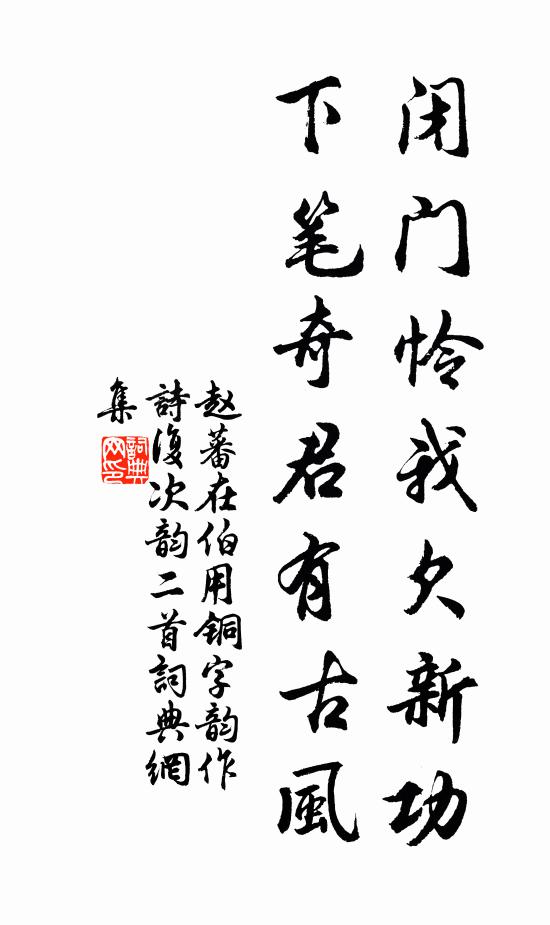 闭门怜我欠新功
下笔奇君有古風
赵蕃在伯用銅字韵作
詩復次韵二首詞典網
集
詞典
网印